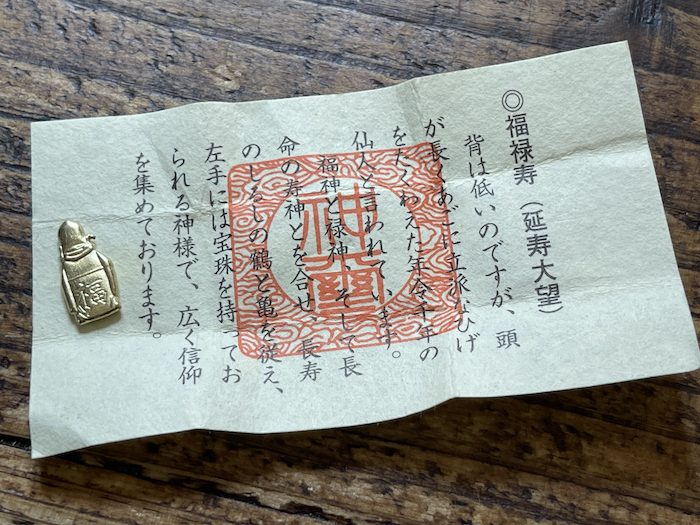 ◎福禄寿（延寿大望）
背は低いのですが、頭
が長くあごに立派なひげ
をたくわえた年令千年の
仙人と言われています。
福神と禄神、そして長
命の寿神とを合せ、長寿
のしるしの鶴と亀を従え、
左手には宝珠を持ってお
られる神様で、広く信仰
を集めております。
福